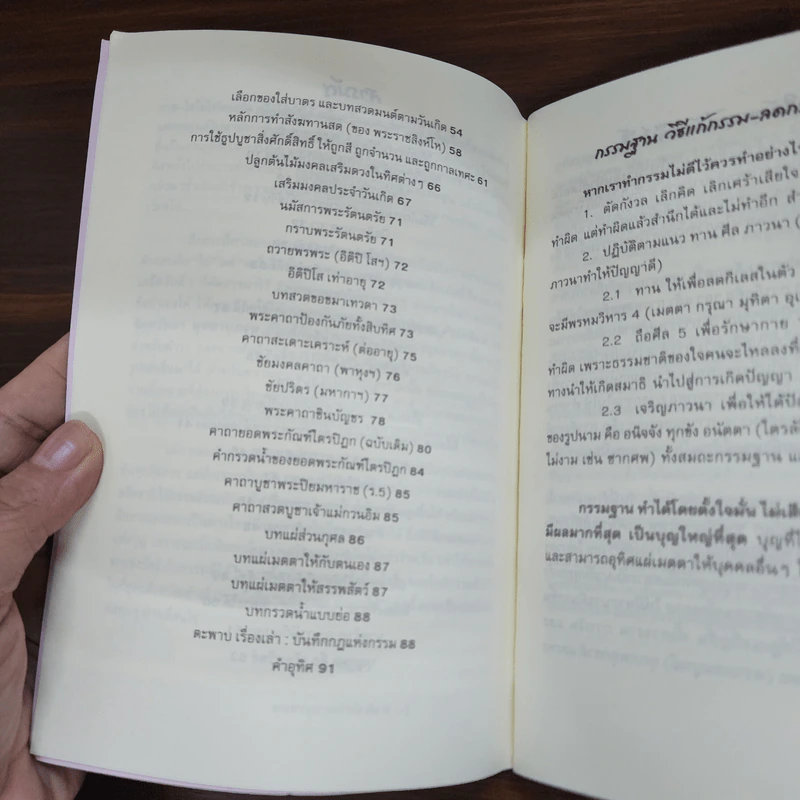 เลือกของใส่บาตร และบทสวดมนต์ตามวันเกิด 54
หลักการทำสังฆทานสด (ของ พระราชสิงห์โห) 58
การใช้ธูปบูชาสิ่งศักดิ์สิทธิ์ ให้ถูกสี ถูกจำนวน และถูกกาลเทศะ 61
ปลูกต้นไม้มงคลเสริมดวงในทิศต่างๆ 66
เสริมมงคลประจำวันเกิด 67
นมัสการพระรัตนตรัย 71
กราบพระรัตนตรัย 71
ถวายพรพระ (อิติปิ โสฯ) 72
อิติปิโส เท่าอายุ 72
บทสวดขอขมาเทวดา 73
พระคาถาป้องกันภัยทั้งสิบทิศ 73
คาถาสะเดาะเคราะห์ (ต่ออายุ) 75
ชัยมงคลคาถา (พาหุงฯ) 76
ชัยปริตร (มหากาฯ) 77
พระคาถาชินบัญชร 78
คาถายอดพระกัณฑ์ไตรปิฎก (ฉบับเดิม) 80
คำกรวดน้ำของยอดพระกัณฑ์ไตรปิฎก 84
คาถาบูชาพระปิยมหาราช (ร.5) 85
คาถาสวดบูชาเจ้าแม่กวนอิม 85
บทแผ่ส่วนกุศล 86
บทแผ่เมตตาให้กับตนเอง 87
บทแผ่เมตตาให้สรรพสัตว์ 87
บทกรวดน้ำแบบย่อ 88
ตะพาบ่ เรื่องเล่า : บันทึกกฎแห่งกรรม 88
คำอุทิศ 91
กรรมฐาน วิธีแก้กรรม-ลด
หากเราทำกรรมไม่ดีไว้ควรทำอย่างไร
1. ตัดกังวล เลิกคิด เลิกเศร้าเสียใจ
ทำผิด แต่ทำผิดแล้วสำนึกได้และไม่ทำอีก
2. ปฏิบัติตามแนว ทาน ศีล ภาวนา
ภาวนาทำให้ปัญญาดี)
2.1 ทาน ให้เพื่อลดกิเลสในตัว
จะมีพรหมวิหาร 4 (เมตตา กรุณา มุทิตา
2.2 ถือศีล 5 เพื่อรักษากาย
ทำผิด เพราะธรรมชาติของใจคนจะไหลลงที่
ทางนำให้เกิดสมาธิ นำไปสู่การเกิดปัญญา
2.3 เจริญภาวนา เพื่อให้ได้
ของรูปนาม คือ อนิจจัง ทุกขัง อนัตตา
ไม่งาม เช่น ซากศพ) ทั้งสมถะกรรมฐาน
กรรมฐาน ทำได้โดยตั้งใจมั่น ไม่
มีผลมากที่สุด เป็นบุญใหญ่ที่สุด บุญที่
และสามารถอุทิศแผ่เมตตาให้บุคคลอื่นๆ